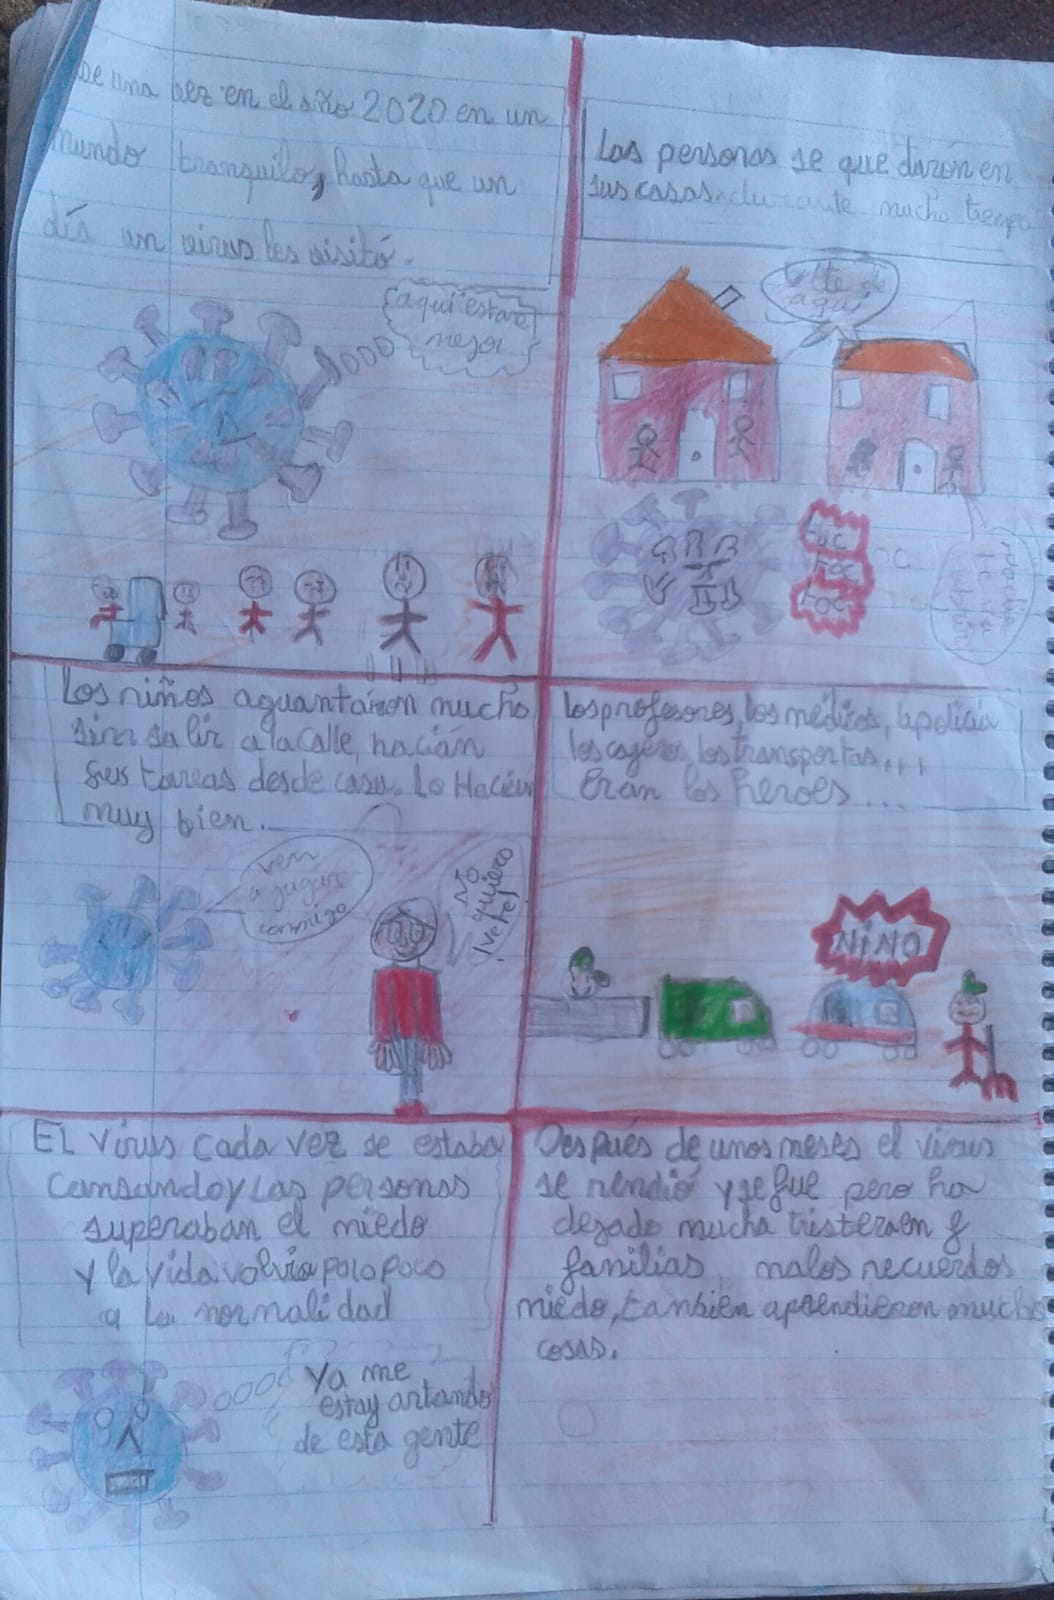 se una vez en el año 2020 en un
mundo tranquilo, hasta que un
día un virus les visitó.
aqui estaré
mejor
Las personas se que darón en
sus casas durante mucho tiempo
vete de
aquí
toc
toc
toc
Los niños aguantaron mucho
sin salir a la calle, hacián
sus tareas desde casa. Lo Hacien
muy bien.
ven
a gugar
conmigo
No
quiero
!vete!
los profesores, los médicos, la policia
los cageros, los transportas...
Eran los heroes...
NiNO
EL virus cada vez se estaba
Cansando y Las personas
superaban el miedo
y la vida volvia poco poco
a la normalidad
Ya me
estoy artando
de esta gente
Después de unos meses el virus
se rendió y se fue pero ha
dejado mucha tristeza en
familias, malos recuerdos
miedo, tanbien aprendieron mucho
cosas.